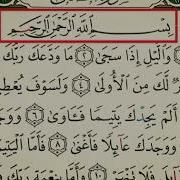 بِسْمِ ٱللَّهِ ٱلرَّحْمَٰنِ ٱلرَّحِيمِ
وَٱلَّيْلِ إِذَا سَجَىٰ ٢ مَا وَدَّعَكَ رَبُّكَ
لَّكَ مِنَ ٱلْأُولَىٰ ٤ وَلَسَوْفَ يُعْطِي
أَلَمْ يَجِدْكَ يَتِيمًا فَـَٔاوَىٰ ٦ وَوَ
وَوَجَدَكَ عَآئِلًا فَأَغْنَىٰ ٨ فَأَمَّا ٱلْيَتِي